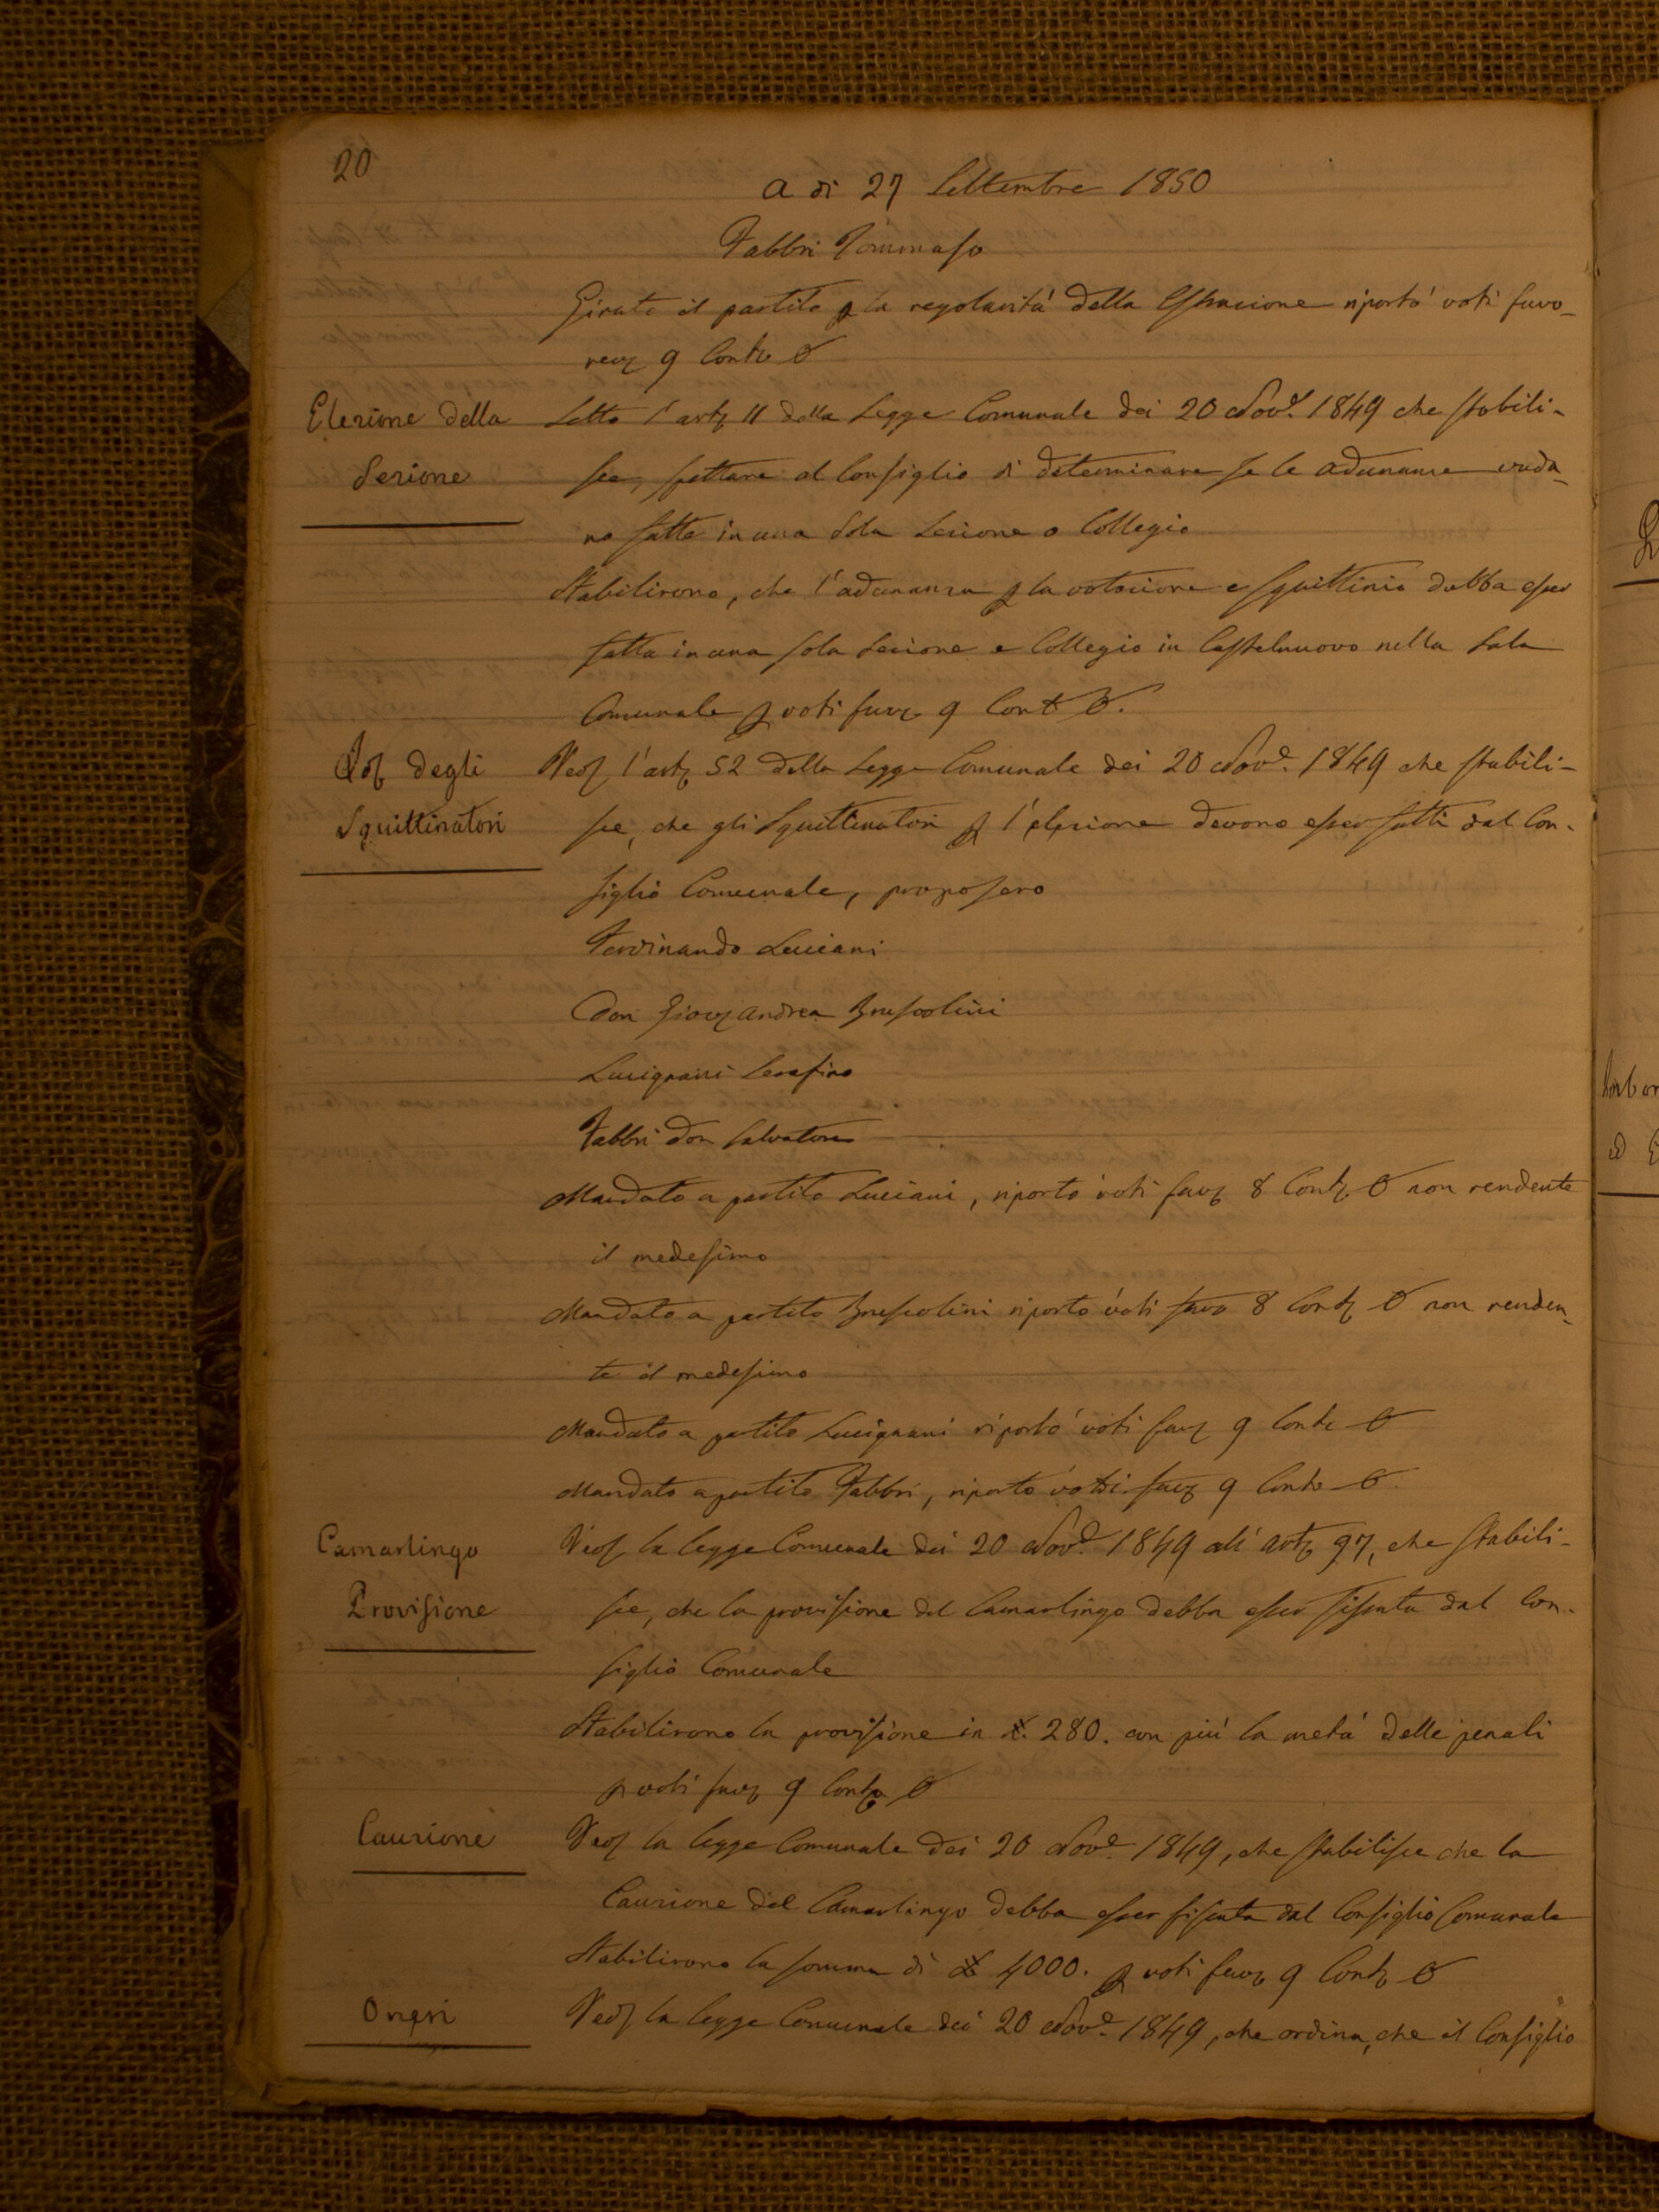 20
a di 27 Settembre 1850
Fabbri Tommaso
Girato il partito p la regolarità della Estrazione riportò voti favo-
revz 9 Contr 0
Elezione della
Sezione
Letto l'artz 11 della Legge Comunale dei 20 Nov.e 1849 che stabili-
sce, spettare al Consiglio di determinare se le adunanze vada-
no fatte in una Sola Sezione o Collegio
Stabilirono, che l'adunanza p la votazione e squittinio debba esser
fatta in una sola Sezione e Collegio in Castelnuovo nella Sala
Comunale p voti favz 9 Cont 0.
degli
Squittinatori
Ved l'artz 52 della Legge Comunale dei 20 Nov.e 1849 che stabili-
sce, che gli Squittinatori p l'elezione devono esser fatti dal Con-
siglio Comunale, proposero
Ferdinando Luciani
Don Giovz Andrea Bruscolini
Lucignani Serafino
Fabbri Don Salvatore
Mandato a partito Luciani, riportò voti favz 8 Contz 0 non rendente
il medesimo
Mandato a partito Bruscolini riportò voti favo 8 Contz 0 non renden-
te il medesimo
Mandato a partito Lucignani riportò voti favz 9 Contr 0
Mandato a partito Fabbri, riportò voti favz 9 Contr 0
Camarlingo
Provisione
Ved la legge Comunale dei 20 Nov.e 1849 all' artz 97, che stabili-
sce, che la provisione del Camarlingo debba esser fissata dal Con-
siglio Comunale
Stabilirono la provisione in £ 280. con più la metà delle penali
p voti favz 9 Contz 0
Cauzione
Ved la legge Comunale dei 20 Nov.e 1849, che stabilisce che la
Cauzione del Camarlingo debba esser fissata dal Consiglio Comunale
Stabilirono la somma di £ 4000. p voti favz 9 Contz 0
Oneri
Ved la legge Comunale dei 20 Nov.e 1849, che ordina, che il Consiglio